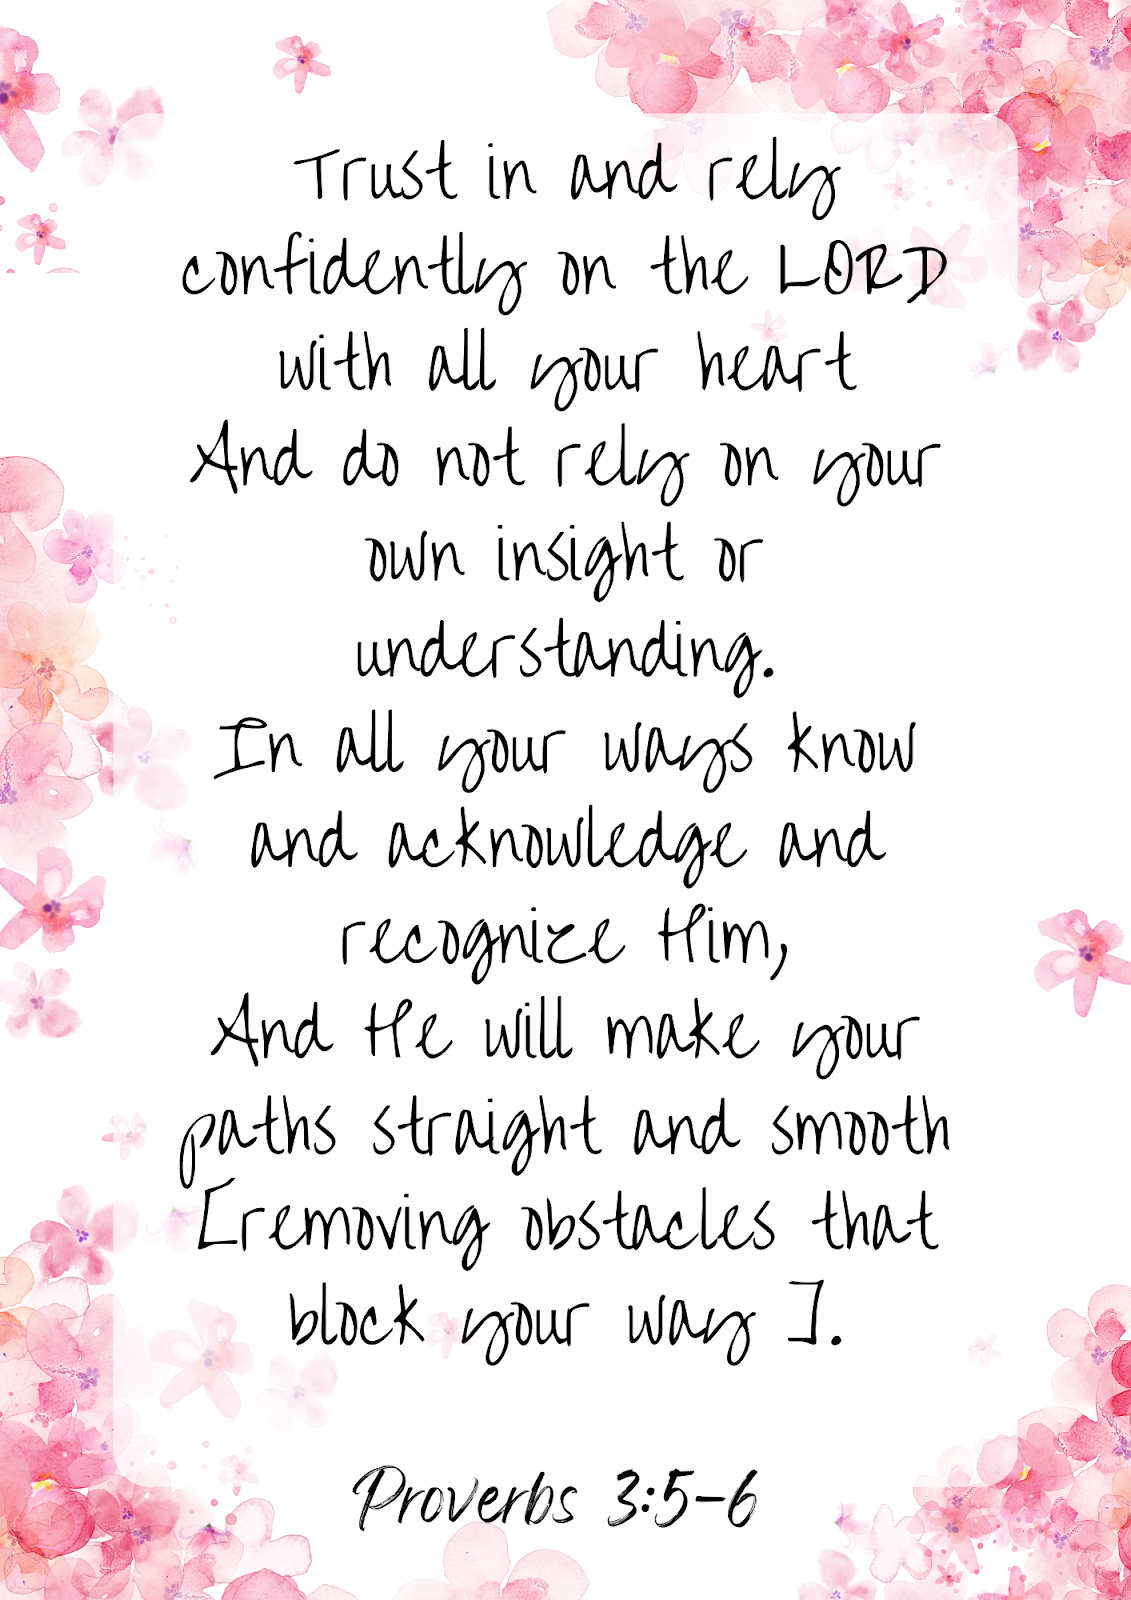 Trust in and rely
confidently on the LORD
with all your heart
And do not rely on your
own insight or
understanding.
In all your ways know
and acknowledge and
recognize Him,
And He will make your
paths straight and smooth
[removing obstacles that
block your way ].
Proverbs 3:5-6